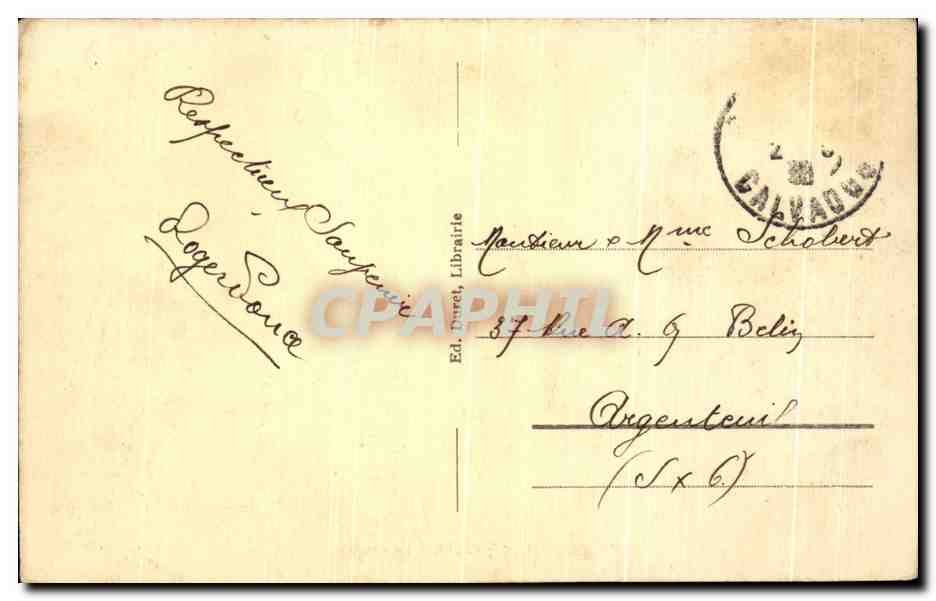 Respectieux Souvenir
Roger
Ed. Duret, Librairie
CPAPHIL
CALVADOS
Monsieur & Mme Schobert
37 Rue A. G Belin
Argenteuil
(S x O)